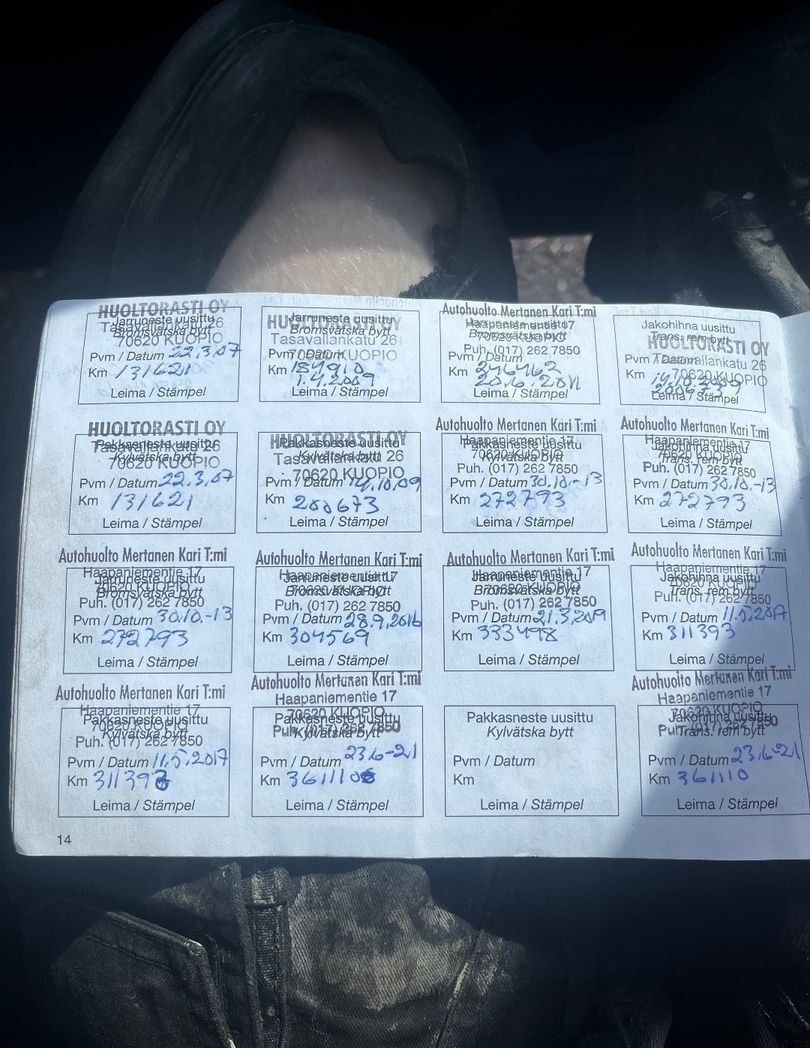 HUOLTORASTI OY
Jarruneste uusittu
Tasavallankatu 26
Bromsvätska bytt
70620 KUOPIO
Pvm / Datum 22.3.07
Km 131621
Leima / Stämpel
Jarruneste uusittu
HUOLTORASTI OY
Bromsvätska bytt
Tasavallankatu 26
70620 KUOPIO
Pvm / Datum
Km 184910
1.4.2009
Leima / Stämpel
Autohuolto Mertanen Kari T:mi
Jarruneste uusittu
Haapaniementie 17
Bromsvätska bytt
70620 KUOPIO
Puh. (017) 262 7850
Pvm / Datum
Km 246462
20.6.2011
Leima / Stämpel
Jakohihna uusittu
Trans. rem bytt
HUOLTORASTI OY
Pvm / Datum
Tasavallankatu 26
70620 KUOPIO
Km 14.10.2009
200673
Leima / Stämpel
HUOLTORASTI OY
Pakkasneste uusittu
Tasavallankatu 26
Kylvätska bytt
70620 KUOPIO
Pvm / Datum 22.3.07
Km 131621
Leima / Stämpel
HUOLTORASTI OY
Pakkasneste uusittu
Kylvätska bytt
Tasavallankatu 26
70620 KUOPIO
Pvm / Datum 14.10.09
Km 200673
Leima / Stämpel
Autohuolto Mertanen Kari T:mi
Haapaniementie 17
Pakkasneste uusittu
70620 KUOPIO
Kylvätska bytt
Puh. (017) 262 7850
Pvm / Datum 30.10.-13
Km 272793
Leima / Stämpel
Autohuolto Mertanen Kari T:mi
Haapaniementie 17
Jakohihna uusittu
70620 KUOPIO
Trans. rem bytt
Puh. (017) 262 7850
Pvm / Datum 30.10.-13
Km 272793
Leima / Stämpel
Autohuolto Mertanen Kari T:mi
Haapaniementie 17
Jarruneste uusittu
70620 KUOPIO
Bromsvätska bytt
Puh. (017) 262 7850
Pvm / Datum 30.10.-13
Km 272793
Leima / Stämpel
Autohuolto Mertanen Kari T:mi
Haapaniementie 17
Jarruneste uusittu
70620 KUOPIO
Bromsvätska bytt
Puh. (017) 262 7850
Pvm / Datum 28.9.2016
Km 304569
Leima / Stämpel
Autohuolto Mertanen Kari T:mi
Haapaniementie 17
Jarruneste uusittu
70620 KUOPIO
Bromsvätska bytt
Puh. (017) 262 7850
Pvm / Datum 21.3.2019
Km 333498
Leima / Stämpel
Autohuolto Mertanen Kari T:mi
Haapaniementie 17
Jakohihna uusittu
70620 KUOPIO
Trans. rem bytt
Puh. (017) 262 7850
Pvm / Datum 11.5.2017
Km 311393
Leima / Stämpel
Autohuolto Mertanen Kari T:mi
Haapaniementie 17
Pakkasneste uusittu
70620 KUOPIO
Kylvätska bytt
Puh. (017) 262 7850
Pvm / Datum 11.5.2017
Km 311393
Leima / Stämpel
Autohuolto Mertanen Kari T:mi
Haapaniementie 17
70620 KUOPIO
Pakkasneste uusittu
Puh. (017) 262 7850
Kylvätska bytt
Pvm / Datum 23.6-21
Km
Leima / Stämpel
Pakkasneste uusittu
Kylvätska bytt
Pvm / Datum
Km
Leima / Stämpel
Autohuolto Mertanen Kari T:mi
Haapaniementie 17
70620 KUOPIO
Jakohihna uusittu
Puh. (017) 262 7850
Trans. rem bytt
Pvm / Datum 23.6-21
Km 361110
Leima / Stämpel
14